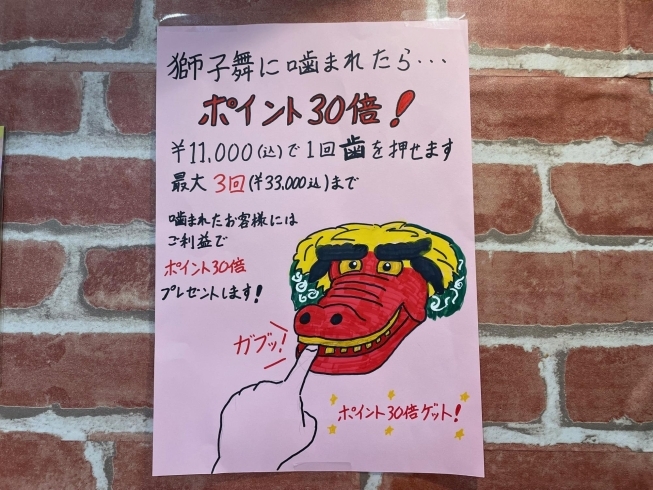 獅子舞に噛まれたら…
ポイント30倍!
¥11,000(込)で1回歯を押せます
最大 3回(¥33,000込)まで
噛まれたお客様には
ご利益で
ポイント30倍
プレゼントします!
ガブッ!
ポイント30倍ゲット!